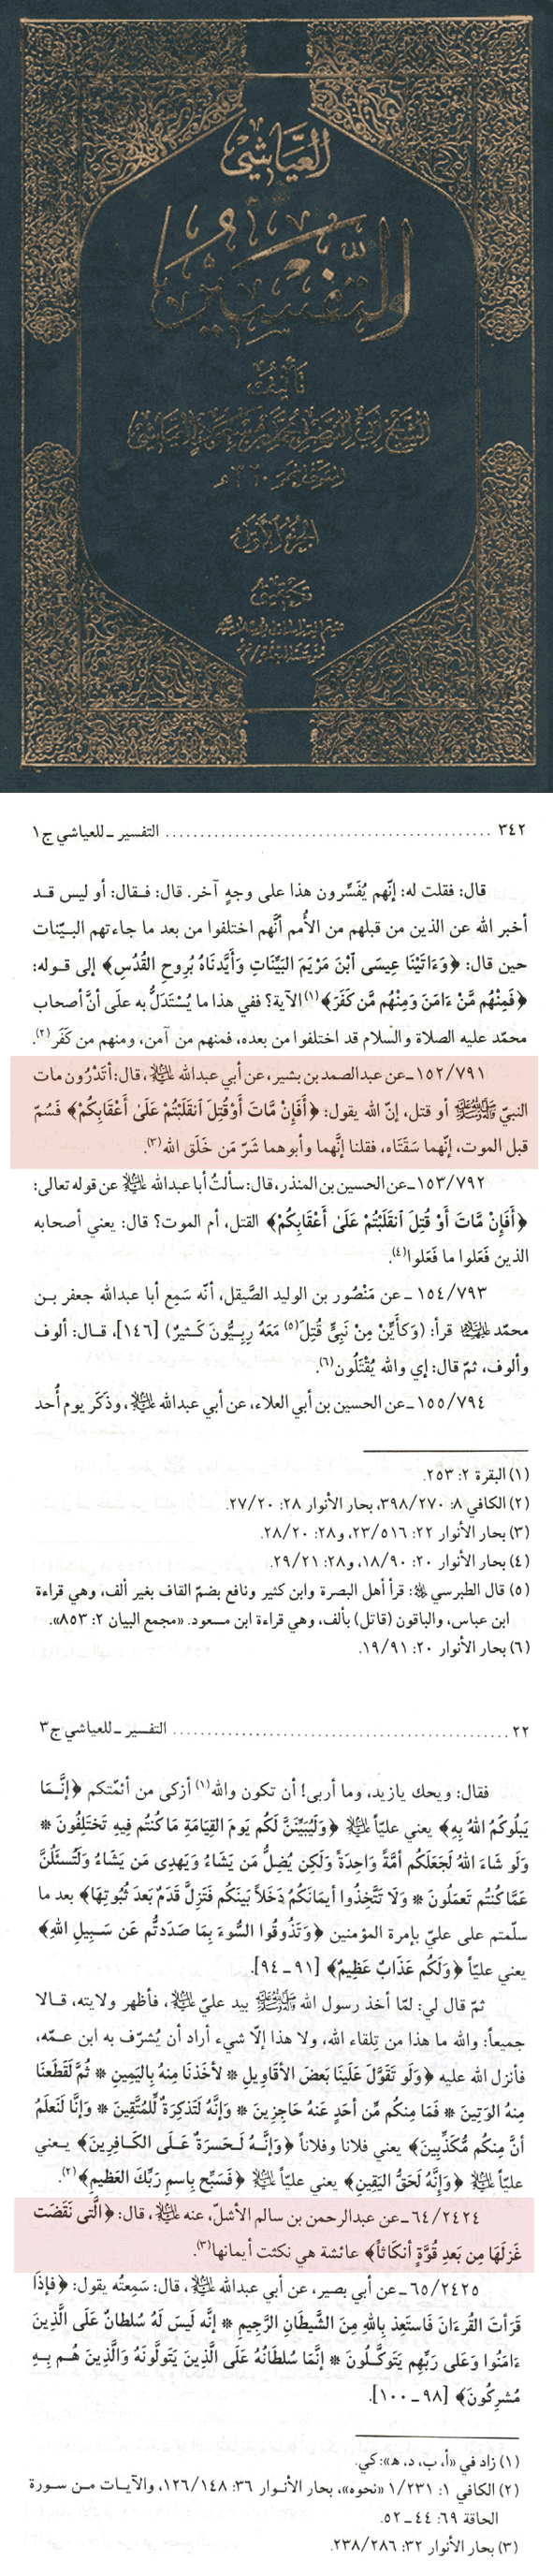 العيّاشي
التفسير
تأليف
الشيخ أبي النضر محمد بن مسعود العياشي
المتوفى نحو ٣٢٠ هـ
الجزء الأول
تحقيق
٣٤٢ ........ التفسير ـ للعياشي ج١
قال: فقلت له: إنّهم يُفَسِّرون هذا على وجهٍ آخر. قال: فـقال: أو ليس قـد
أخبر الله عن الذين من قبلهم من الأُمم أنَّهم اختلفوا من بعد ما جاءتهم البـيّنات
حين قال: ﴿وَءَاتَيْنَا عِيسَى ٱبْنَ مَرْيَمَ البَيِّنَاتِ وَأَيَّدنَاهُ بِرُوحِ القُدُسِ﴾ إلى قـوله:
﴿فَمِنْهُم مَّنْ ءَامَنَ وَمِنْهُم مَّن كَفَرَ﴾(١) الآية؟ ففي هذا ما يُسْتَدَلُّ به علَى أنَّ أصحاب
محمّد عليه الصلاة والسلام قد اختلفوا من بعده، فمنهم من آمن، ومنهم من كَفَر(٢).
١٥٢/٧٩١ ـ عن عبدالصمد بن بشير، عن أبي عبدالله عليه السلام، قال: أتَدْرُون مات
النبيّ صلى الله عليه وآله أو قتل، إنّ الله يقول: ﴿أَفَإِن مَّاتَ أَوْ قُتِلَ ٱنقَلَبْتُمْ عَلَىٰ أَعْقَابِكُمْ﴾ فَسُمّ
قبل الموت، إنّهما سَقَتَاه، فقلنا إنَّهما وأبوهما شَرّ مَن خَلَق الله(٣).
١٥٣/٧٩٢ ـ عن الحسين بن المنذر، قال: سألتُ أبا عبدالله عليه السلام عن قوله تعالى:
﴿أَفَإِن مَّاتَ أَوْ قُتِلَ ٱنقَلَبْتُمْ عَلَىٰ أَعْقَابِكُمْ﴾ القتل، أم الموت؟ قال: يعني أصحابه
الذين فَعَلوا ما فَعَلوا(٤).
١٥٤/٧٩٣ ـ عن مَنْصُور بن الوليد الصَّيقل، أنّه سَمِع أبا عبدالله جعفر بـن
محمّد عليهما السلام قرأ: (وَكأَيِّنْ مِنْ نَبِيٍّ قُتِلَ(٥) مَعَهُ رِبِـيُّونَ كَـثيرٌ) [١٤٦]، قـال: ألوف
وألوف، ثمّ قال: إي والله يُقْتَلُون(٦).
١٥٥/٧٩٤ ـ عن الحسين بن أبي العلاء، عن أبي عبدالله عليه السلام، وذكَر يوم أُحد
(١) البقرة ٢: ٢٥٣.
(٢) الكافي ٨: ٣٩٨/٢٧٠، بحار الأنوار ٢٨: ٢٧/٢٠.
(٣) بحار الأنوار ٢٢: ٢٣/٥١٦، و٢٨: ٢٨/٢٠.
(٤) بحار الأنوار ٢٠: ١٨/٩٠، و٢٨: ٢٩/٢١.
(٥) قال الطبرسي: قرأ أهل البصرة وابن كثير ونافع بضمّ القاف بغير ألف، وهي قراءة
ابن عباس، والباقون (قاتل) بألف، وهي قراءة ابن مسعود. «مجمع البيان ٢: ٨٥٣».
(٦) بحار الأنوار ٢٠: ١٩/٩١.
٢٢ ........ التفسير ـ للعياشي ج٣
فقال: ويحك يا زيد، وما أربى! أن تكون والله(١) أزكى من أئمّتكم ﴿إنَّـمَا
يَبلُوكُمُ اللهُ بِهِ﴾ يعني عليّاً عليه السلام ﴿وَلَيُبَيِّنَنَّ لَكُم يَومَ القِيَامَةِ مَا كُنتُم فِيهِ تَختَلِفُونَ *
وَلَو شَاءَ اللهُ لَجَعَلَكُم أمَّةً وَاحِدَةً وَلَكِن يُضِلُّ مَن يَشَاءُ وَيَهدِى مَن يَشَاءُ وَلَتُسئَلُنَّ
عَمَّا كُنتُم تَعمَلُونَ * وَلَا تَتَّخِذُوا أيمَانَكُمْ دَخَلاً بَينَكُم فَتَزِلَّ قَدَمٌ بَعدَ ثُبُوتِهَا﴾ بعد ما
سلّمتم على عليّ بإمرة المؤمنين ﴿وَتَذُوقُوا السُّوءَ بِمَا صَدَدتُّم عَن سَـبِيلِ اللهِ﴾
يعني عليّاً ﴿وَلَكُم عَذَابٌ عَظِيمٌ﴾ [٩١ ـ ٩٤].
ثمّ قال لي: لمّا أخذ رسول الله صلى الله عليه وآله بيد عليّ عليه السلام، فأظهر ولايته، قـالا
جميعاً: والله ما هذا من تِلقاء الله، ولا هذا إلّا شيء أراد أن يُشرّف به ابن عـمّه،
فأنزل الله عليه ﴿وَلَو تَقَوَّلَ عَلَينَا بَعضَ الأقَاوِيلِ * لأخَذنَا مِنهُ بِاليَمِينِ * ثُمَّ لَقَطَعنَا
مِنهُ الوَتِينَ * فَمَا مِنكُم مِّن أحَدٍ عَنهُ حَاجِزِينَ * وَإنَّهُ لَتَذكِرَةٌ لِّلمُتَّقِينَ * وَإنَّا لَنَعلَمُ
أنَّ مِنكُم مُّكَذِّبِينَ﴾ يعني فلانا وفلاناً ﴿وَإنَّـهُ لَـحَسرَةٌ عَـلَى الكَـافِرِينَ﴾ يـعني
عليّاً عليه السلام ﴿وَإنَّهُ لَحَقُّ اليَقِينِ﴾ يعني عليّاً عليه السلام ﴿فَسَبِّح بِاسمِ رَبِّكَ العَظِيمِ﴾(٢).
٦٤/٢٤٢٤ ـ عن عبدالرحمن بن سالم الأشلّ، عنه عليه السلام، قال: ﴿الَّتى نَقَضَت
غَزلَهَا مِن بَعدِ قُوَّةٍ أنكَاثاً﴾ عائشة هي نكثت أيمانها(٣).
٦٥/٢٤٢٥ ـ عن أبي بصير، عن أبي عبدالله عليه السلام، قال: سَمِعتُه يقول: ﴿فإذَا
قَرَأتَ القُرءَانَ فَاستَعِذ بِاللهِ مِنَ الشَّيطَانِ الرَّجِيمِ * إنَّه لَيسَ لَهُ سُلطانٌ عَلَى الَّذِينَ
ءَامَنُوا وَعَلى رَبِّهِم يَتَوكَّـلُونَ * إنَّمَا سُلطَانُهُ عَلَى الَّذينَ يَتَولَّونَهُ وَالَّذِينَ هُـم بِـهِ
مُشرِكُونَ﴾ [٩٨ ـ ١٠٠].
(١) زاد في «أ، ب، د، ه»: كي.
(٢) الكافي ١: ١/٢٣١ «نحوه»، بحار الأنـوار ٣٦: ١٢٦/١٤٨، والآيـات مـن سـورة
الحاقة ٦٩: ٤٤ ـ ٥٢.
(٣) بحار الأنوار ٣٢: ٢٣٨/٢٨٦.